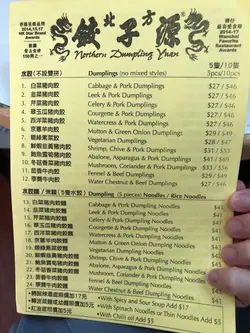 北方
餃子源
Northern Dumpling Yuan
2014,15,17
HK Star Brand
Awards
2014-17
Favorite
Restaurant
Awards
5隻/10隻
水餃 (不設雙拼) Dumplings (no mixed styles) 5pcs/10pcs
1. 白菜豬肉餃 Cabbage & Pork Dumplings $27 / $46
2. 韮菜豬肉餃 Leek & Pork Dumplings $27 / $46
3. 芹菜豬肉餃 Celery & Pork Dumplings $27 / $46
4. 翠玉瓜豬肉餃 Courgette & Pork Dumplings $27 / $46
5. 西洋菜豬肉餃 Watercress & Pork Dumplings $27 / $46
6. 京蔥羊肉餃 Mutton & Green Onion Dumplings $29 / $49
7. 雜錦素菜餃 Vegetarian Dumplings $29 / $49
8. 鮮蝦韮黃豬肉餃 Shrimp, Chive & Pork Dumplings $31 / $53
9. Abalone, Asparagus & Pork Dumplings $41 / $69
10. Mushrooms, Coriander & Pork Dumplings $33 / $56
11. Fennel & Beef Dumplings $29 / $49
12. Water Chestnut & Beef Dumplings $29 / $49
水餃麵 / 米線 (5隻水餃) Dumpling (5 pieces) Noodles / Rice Noodles
13. 白菜豬肉餃麵 Cabbage & Pork Dumpling Noodles $41
14. 韮菜豬肉餃麵 Leek & Pork Dumpling Noodles $41
15. 芹菜豬肉餃麵 Celery & Pork Dumpling Noodles
16. 翠玉瓜豬肉餃麵 Courgette & Pork Dumpling Noodles
17. 西洋菜豬肉餃麵 Watercress & Pork Dumpling Noodles
18. 京蔥羊肉餃麵 Mutton & Green Onion Dumpling Noodles
19. 雜錦素菜餃麵 Vegetarian Dumpling Noodles
20. 鮮蝦韮黃豬肉餃麵 Shrimp, Chive & Pork Dumpling Noodles
21. Abalone, Asparagus & Pork Dumpling Noodles
22. Mushrooms, Coriander & Pork Dumpling Noodles
23. Fennel & Beef Dumpling Noodles
24. Water Chestnut & Beef Dumpling Noodles $41
With Spicy and Sour Soup Add $17
With Spinach Noodles or Thin Noodles Add $3
With Chili oil Add $5